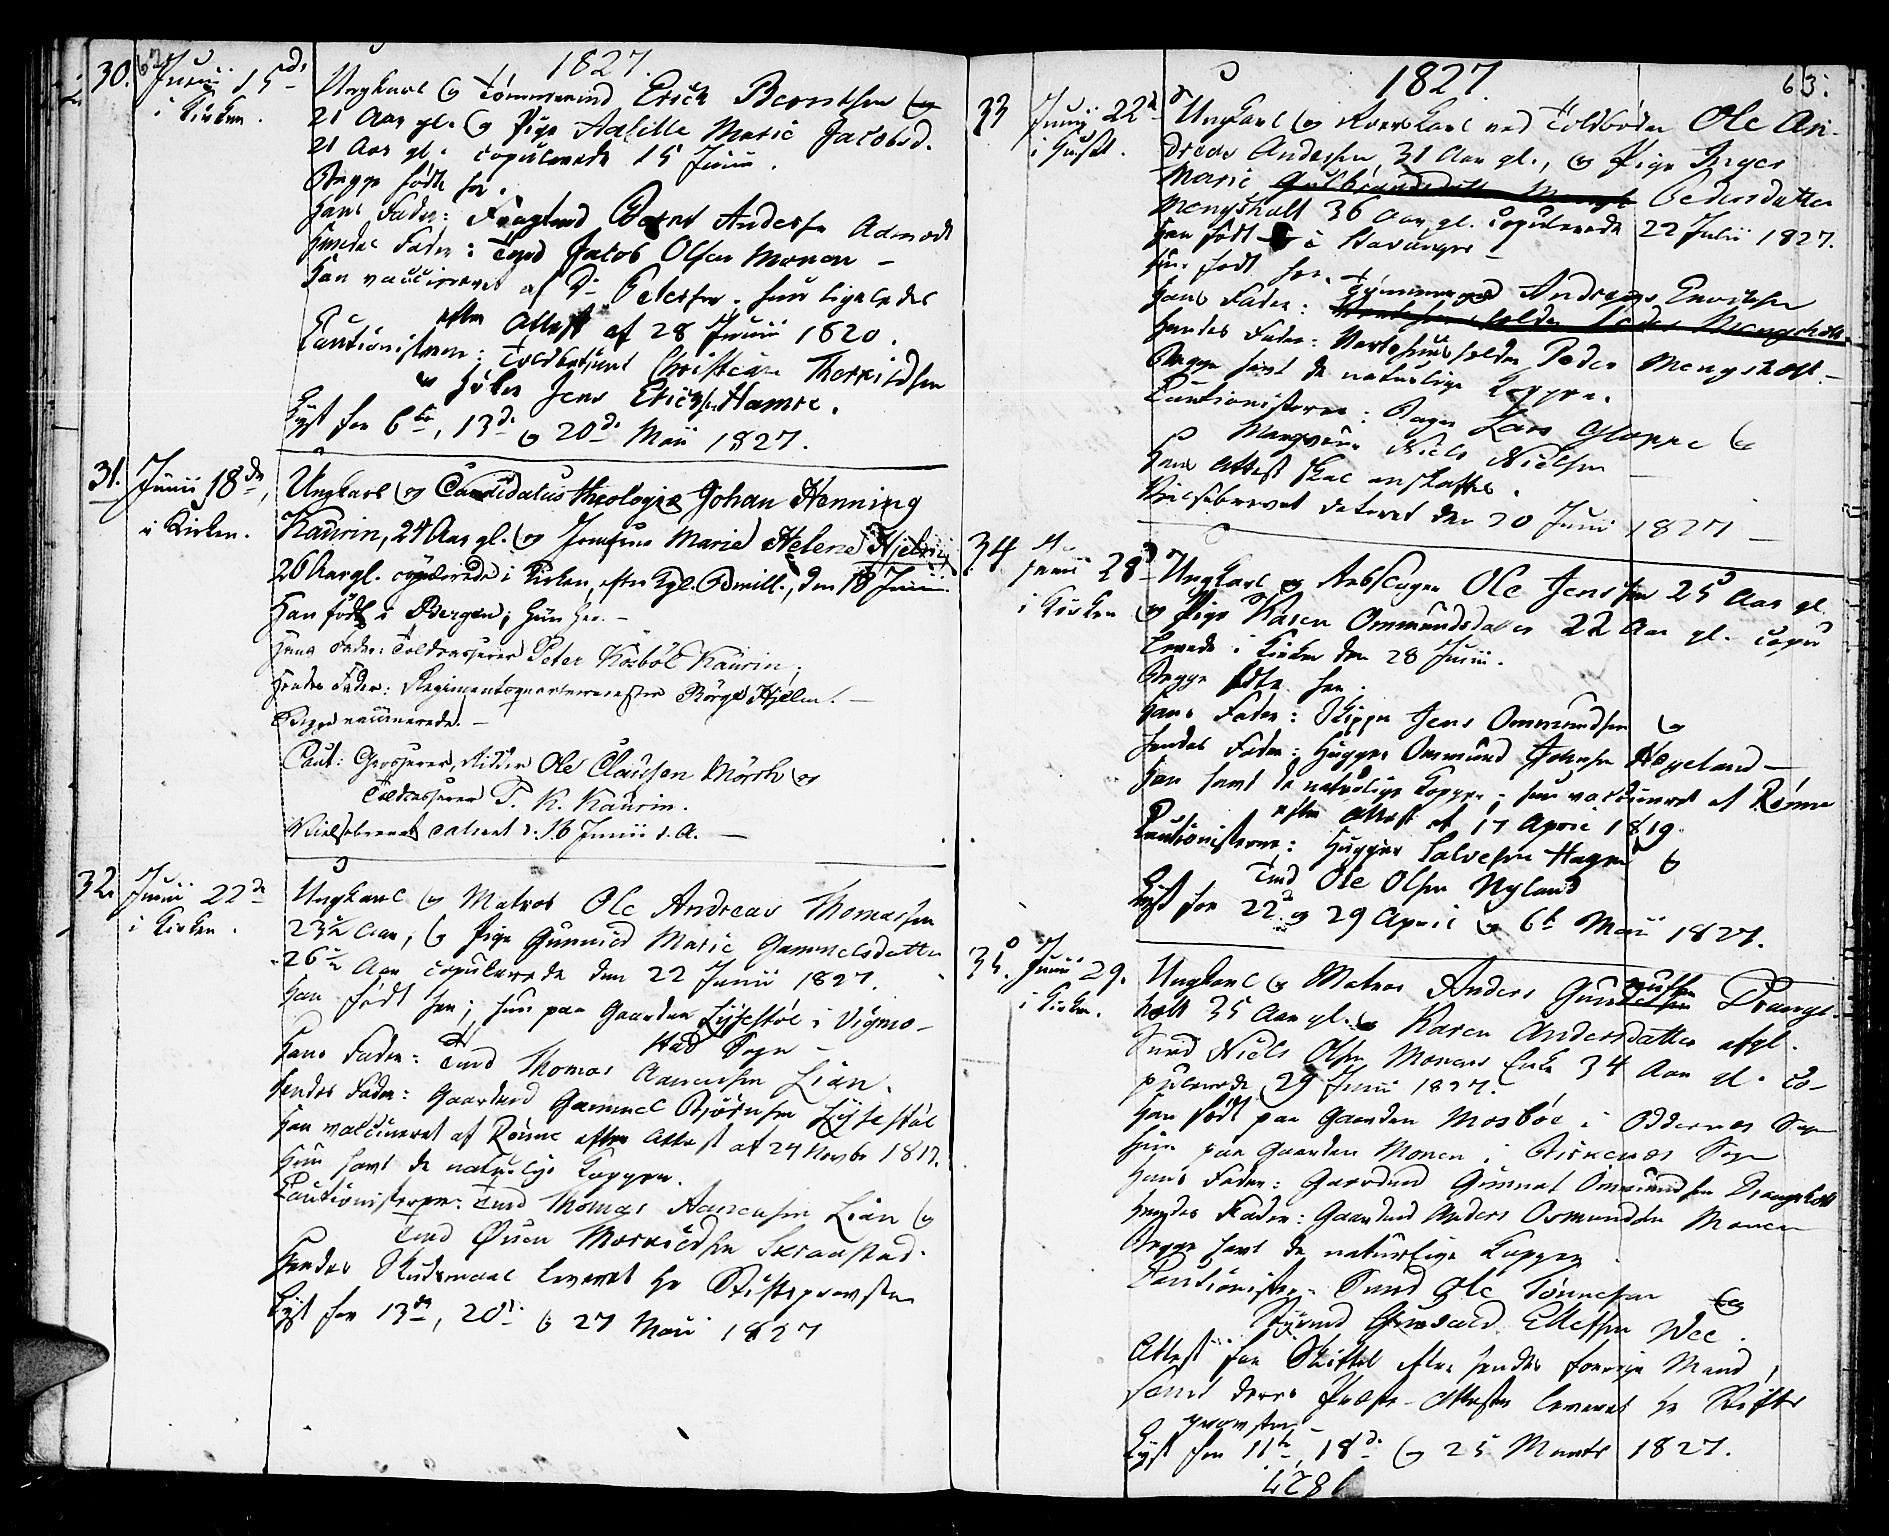 1827.
30. Junii 15de
i Kirken.
Ungkarl og Tømmermd Erich Berntsen og
21 Aar gl. og Pige Adsille Marie Jacobsd.
21 Aar gl. copulerede 15 Junii.
Begge fødte her.
Hans Fader: Bernt Andersen
Hendes Fader: Tmd Jacob Olsen Monan –
Han vaccineret af Dr Petersen. Hun ligeledes
efter Attest af 28 Junii 1820.
Cautionisterne: Toldbetjent Christian Therkildsen
og Jens Erichsen Hamre.
Lyst for 6te, 13de og 20de Maii 1827.
31. Junii 18de,
i Kirken.
Ungkarl og Candidatus theologiæ Johan Henning
Kaurin, 24 Aar gl. og Jomfrue Marie Helene Hjelm
26 Aar gl. copulerede i Kirken, efter Kgl. Bevill., den 18 Junii.
Han født i Bergen; hun her. –
Hans Fader: Toldcasserer Peter Kosböl Kaurin;
Hendes Fader: Regimentsqvarteermester Börge Hjelm. –
Begge vaccinerede. –
Caut: Grosserer, Ridder Ole Clausen Mörch og
Toldcasserer P. K. Kaurin.
Vielsebrevet dateret d. 16 Junii d. A. –
32. Junii 22de
i Kirken.
Ungkarl og Matros Ole Andreas Thomassen
23½ Aar, og Pige Gunnild Marie Gammelsdatter
26½ Aar copulerede den 22 Junii 1827.
Han født her; hun paa Gaarden Lystestøl i Vigmo-
stad Sogn –
Hans Fader: Tmd Thomas Aanensen Lian.
Hendes Fader: Gaardmd Gammel Bjørnsen Lystestøl
Han vaccineret af Rønne efter Attest af 24 Novbr 1817.
Hun havt de naturlige Kopper.
Cautionisterne: Tmd Thomas Aanensen Lian og
Tmd Øuen Thorkildsen Skraastad.
Hendes Skudsmaal leveret Hr Stiftsprovsten
Lyst for 13de, 20de og 27 Maii 1827
1827.
63.
33 Junii 22de
i Huset.
Ungkarl og Roerskarl ved Toldboden Ole An-
dreas Andersen, 31 Aar gl., og Pige Inger
Marie Gulbrandsdatter Mengs Pedersdatter
Mengshatt 36 Aar gl. copulerede 22 Julii 1827.
Han født i Stavanger –
Hun født her.
Hans Fader: Tømmermd Andreas
Hendes Fader: Peder Mengshatt –
Begge havt de naturlige Kopper.
Cautionisterne: Bager Lars Gloppe og
Niels Nielsen
Hans Attest skal anskaffes.
Vielsebrevet dateret den 20 Juni 1827 –
34 Junii 28de
i Kirken
Ungkarl og Ole Jensen 25 Aar gl.
og Pige Karen Ommundsdatter 22 Aar gl. copu
lerede i Kirken den 28 Junii.
Begge fødte her.
Hans Fader: Skipper Jens Ommundsen og
Hendes Fader: Hugger Ommund Johnsen Høyeland –
Han havt de naturlige Kopper; hun vaccineret af Rønne
efter Attest af 17 April 1819.
Cautionisterne: Hugger Salvesen Hagen og
Tmd Ole Olsen Nyland
Lyst for 22de og 29 April og 6te Maii 1827.
35. Junii 29.
i Kirken.
Ungkarl og Matros Anders Drangs-
holt 35 Aar gl. og Karen Andersdatter afgl.
Tmd Niels Olsen Monans Enke 34 Aar gl. co-
pulerede 29 Junii 1827.
Han født paa Gaarden Mosbøe i Oddernes Sogn
Hun paa Gaarden Monen i Birkenæs Sogn
Hans Fader: Gaardmd Gunnar Ommundsen Drangsholt
Hendes Fader: Gaardmd Anders Osmundsen Monen
Begge havt de naturlige Kopper
Cautionister: Tmd Ole Tønnesen og
Gunvald Ellefsen Wee.
Attest for Skiftet efter hendes forrige Mand,
samt deres Præste-Attester leveret Hr Stifts
provsten –
Lyst for 11te, 18de og 25 Marts 1827.
1827